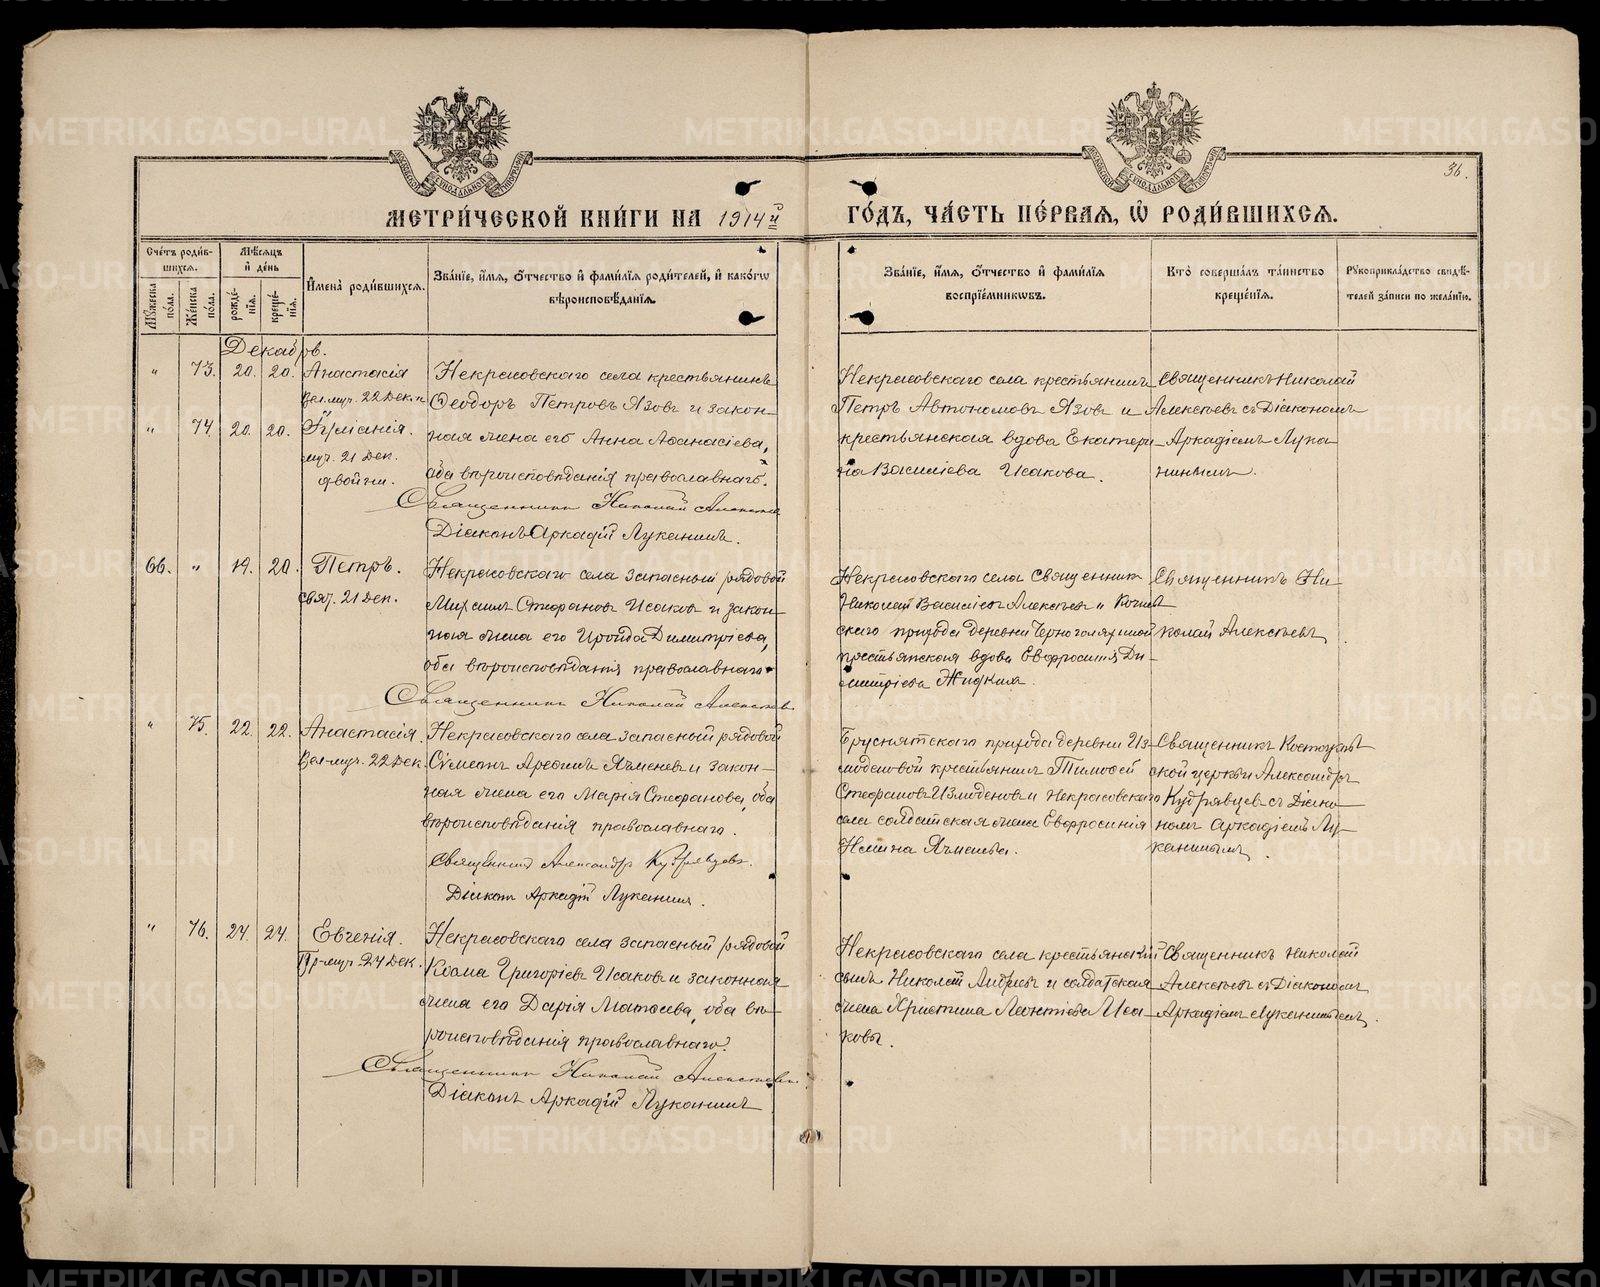 36.
МЕТРИ́ЧЕСКОЙ КНИ́ГИ НА 1914й
ГО́ДЪ, ЧА́СТЬ ПЕ́РВАѦ, Ѽ РОДИ́ВШИХСѦ.
Сче́тъ роди́в-
шихсѧ.
Мѣ́сѧцъ
и҆ де́нь
Мꙋ́жеска по́ла.
Же́нска по́ла.
рожде́-
нїѧ.
креще́-
нїѧ.
И҆мена̀ роди́вшихсѧ.
Зва́нїе, и҆́мѧ, ѻ҆́тчество и҆ фами́лїѧ роди́телей, и҆ како́гѡ
вѣроисповѣ́данїѧ.
Зва́нїе, и҆́мѧ, ѻ҆́тчество и҆ фами́лїѧ
воспрїе́мникѡвъ.
Кто̀ соверша́лъ та́инство
креще́нїѧ.
Рꙋкоприкла́дство свидѣ́-
телей за́писи по жела́нїю.
Декабрь.
" 73. 20. 20. Анастасія
Вел.муч. 22 Дек.
" 74 20. 20. Іуліанія.
муч. 21 Дек.
двойни.
Некрасовскаго села крестьянинъ
Ѳеодоръ Петровъ Язовъ и закон-
ная жена его Анна Аѳанасіева,
оба вѣроисповѣданія православнаго.
Священникъ Николай Алексѣев
Діаконъ Аркадій Луканинъ.
Некрасовскаго села крестьянинъ
Петръ Автономовъ Язовъ и
крестьянская вдова Екатери-
на Василіева Исакова.
Священникъ Николай
Алексѣевъ съ Діакономъ
Аркадіемъ Лука-
нинымъ.
66. " 19. 20. Петръ.
свят. 21 Дек.
Некрасовскаго села запасный рядовой
Михаилъ Стефановъ Исаковъ и закон-
ная жена его Ироида Димитріева,
оба вѣроисповѣданія православнаго.
Священникъ Николай Алексѣев
Некрасовскаго села Священникъ
Николай Василіевъ Алексѣевъ и
скаго прихода деревни
крестьянская вдова Евфросинія Ди-
митріева Жидкихъ.
Священникъ Ни-
колай Алексѣевъ
" 75. 22. 22. Анастасія.
Вел-муч. 22 Дек.
Некрасовскаго села запасный рядовой
Сѵмеонъ Ареѳинъ Ячменевъ и закон-
ная жена его Марія Стефанова, оба
вѣроисповѣданія православнаго.
Священникъ Александръ Кудрявцевъ.
Діаконъ Аркадій Луканинъ.
Бруснятскаго прихода деревни Из-
моденовой крестьянинъ Тимоѳей
Стефановъ Измоденовъ и Некрасовскаго
села солдатская жена Евфросинія
Ячменева.
Священникъ
ской церкви Александръ
Кудрявцевъ съ Діако-
номъ Аркадіемъ Лу-
канинымъ.
" 76. 24. 24. Евгенія.
Пр-муч. 24 Дек.
Некрасовскаго села запасный рядовой
Косма Григоріевъ Исаковъ и законная
жена его Дарія Матѳеева, оба вѣ-
роисповѣданія православнаго.
Священникъ Николай Алексѣевъ.
Діаконъ Аркадій Луканинъ
Некрасовскаго села крестьянскій
сынъ Николай Андреевъ и солдатская
жена Христина Леонтіева Иса-
кова.
Священникъ Николай
Алексѣевъ съ Діакономъ
Аркадіемъ Луканинымъ.
METRIKI.GASO-URAL.RU